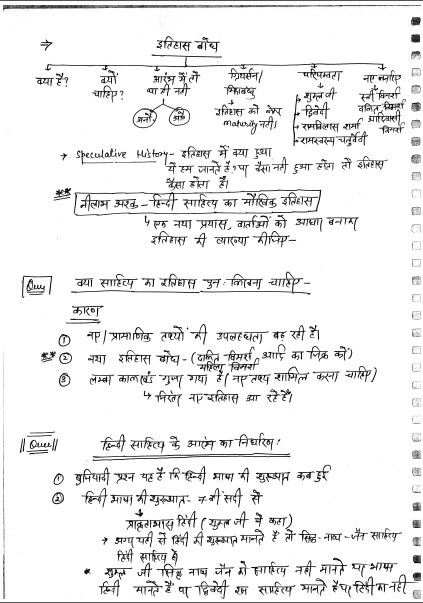 ⇒ इतिहास बोध
क्या है?
क्यों चाहिए?
आरंभ में तो था ही नहीं
ग्रियर्सन/
मिश्रबंधु
इतिहास को लेकर
maturity नहीं।
परिपक्वता
• शुक्ल जी
• द्विवेदी
• रामविलास शर्मा
• रामस्वरूप चतुर्वेदी
स्त्री विमर्श
दलित विमर्श
आदिवासी
विमर्श
→ Speculative History - इतिहास में क्या हुआ
ये हम जानते हैं? पर वैसा नहीं हुआ होता तो इतिहास
कैसा होता है।
** नीलाभ अश्क - हिन्दी साहित्य का मौखिक इतिहास
↳ एक नया प्रयास, वार्ताओं को आधार बनाकर
इतिहास की व्याख्या कीजिए -
Que क्या साहित्य का इतिहास पुनः लिखना चाहिए -
कारण
① नए / प्रामाणिक तथ्यों की उपलब्धता बढ़ रही है।
** ② नया इतिहास बोध - (दलित विमर्श आदि का जिक्र करें)
महिला विमर्श
③ लम्बा कालखंड गुजर गया है (नए तथ्य शामिल करना चाहिए)
↳ निरंतर नए इतिहास आ रहे हैं।
|| Que || हिन्दी साहित्य के आरंभ का निर्धारण!
① बुनियादी प्रश्न यह है कि हिन्दी भाषा की शुरुआत कब हुई
② हिन्दी भाषा की शुरुआत - 7 वीं सदी से
प्राकृताभास हिंदी (शुक्ल जी ने कहा)
→ अगर यहीं से हिंदी की शुरुआत मानते हैं तो सिद्ध - नाथ - जैन साहित्य
हिंदी साहित्य है
* शुक्ल जी सिद्ध नाथ जैन को साहित्य नहीं मानते पर भाषा
हिन्दी मानते हैं पर द्विवेदी इसे साहित्य मानते हैं पर हिंदी का नहीं